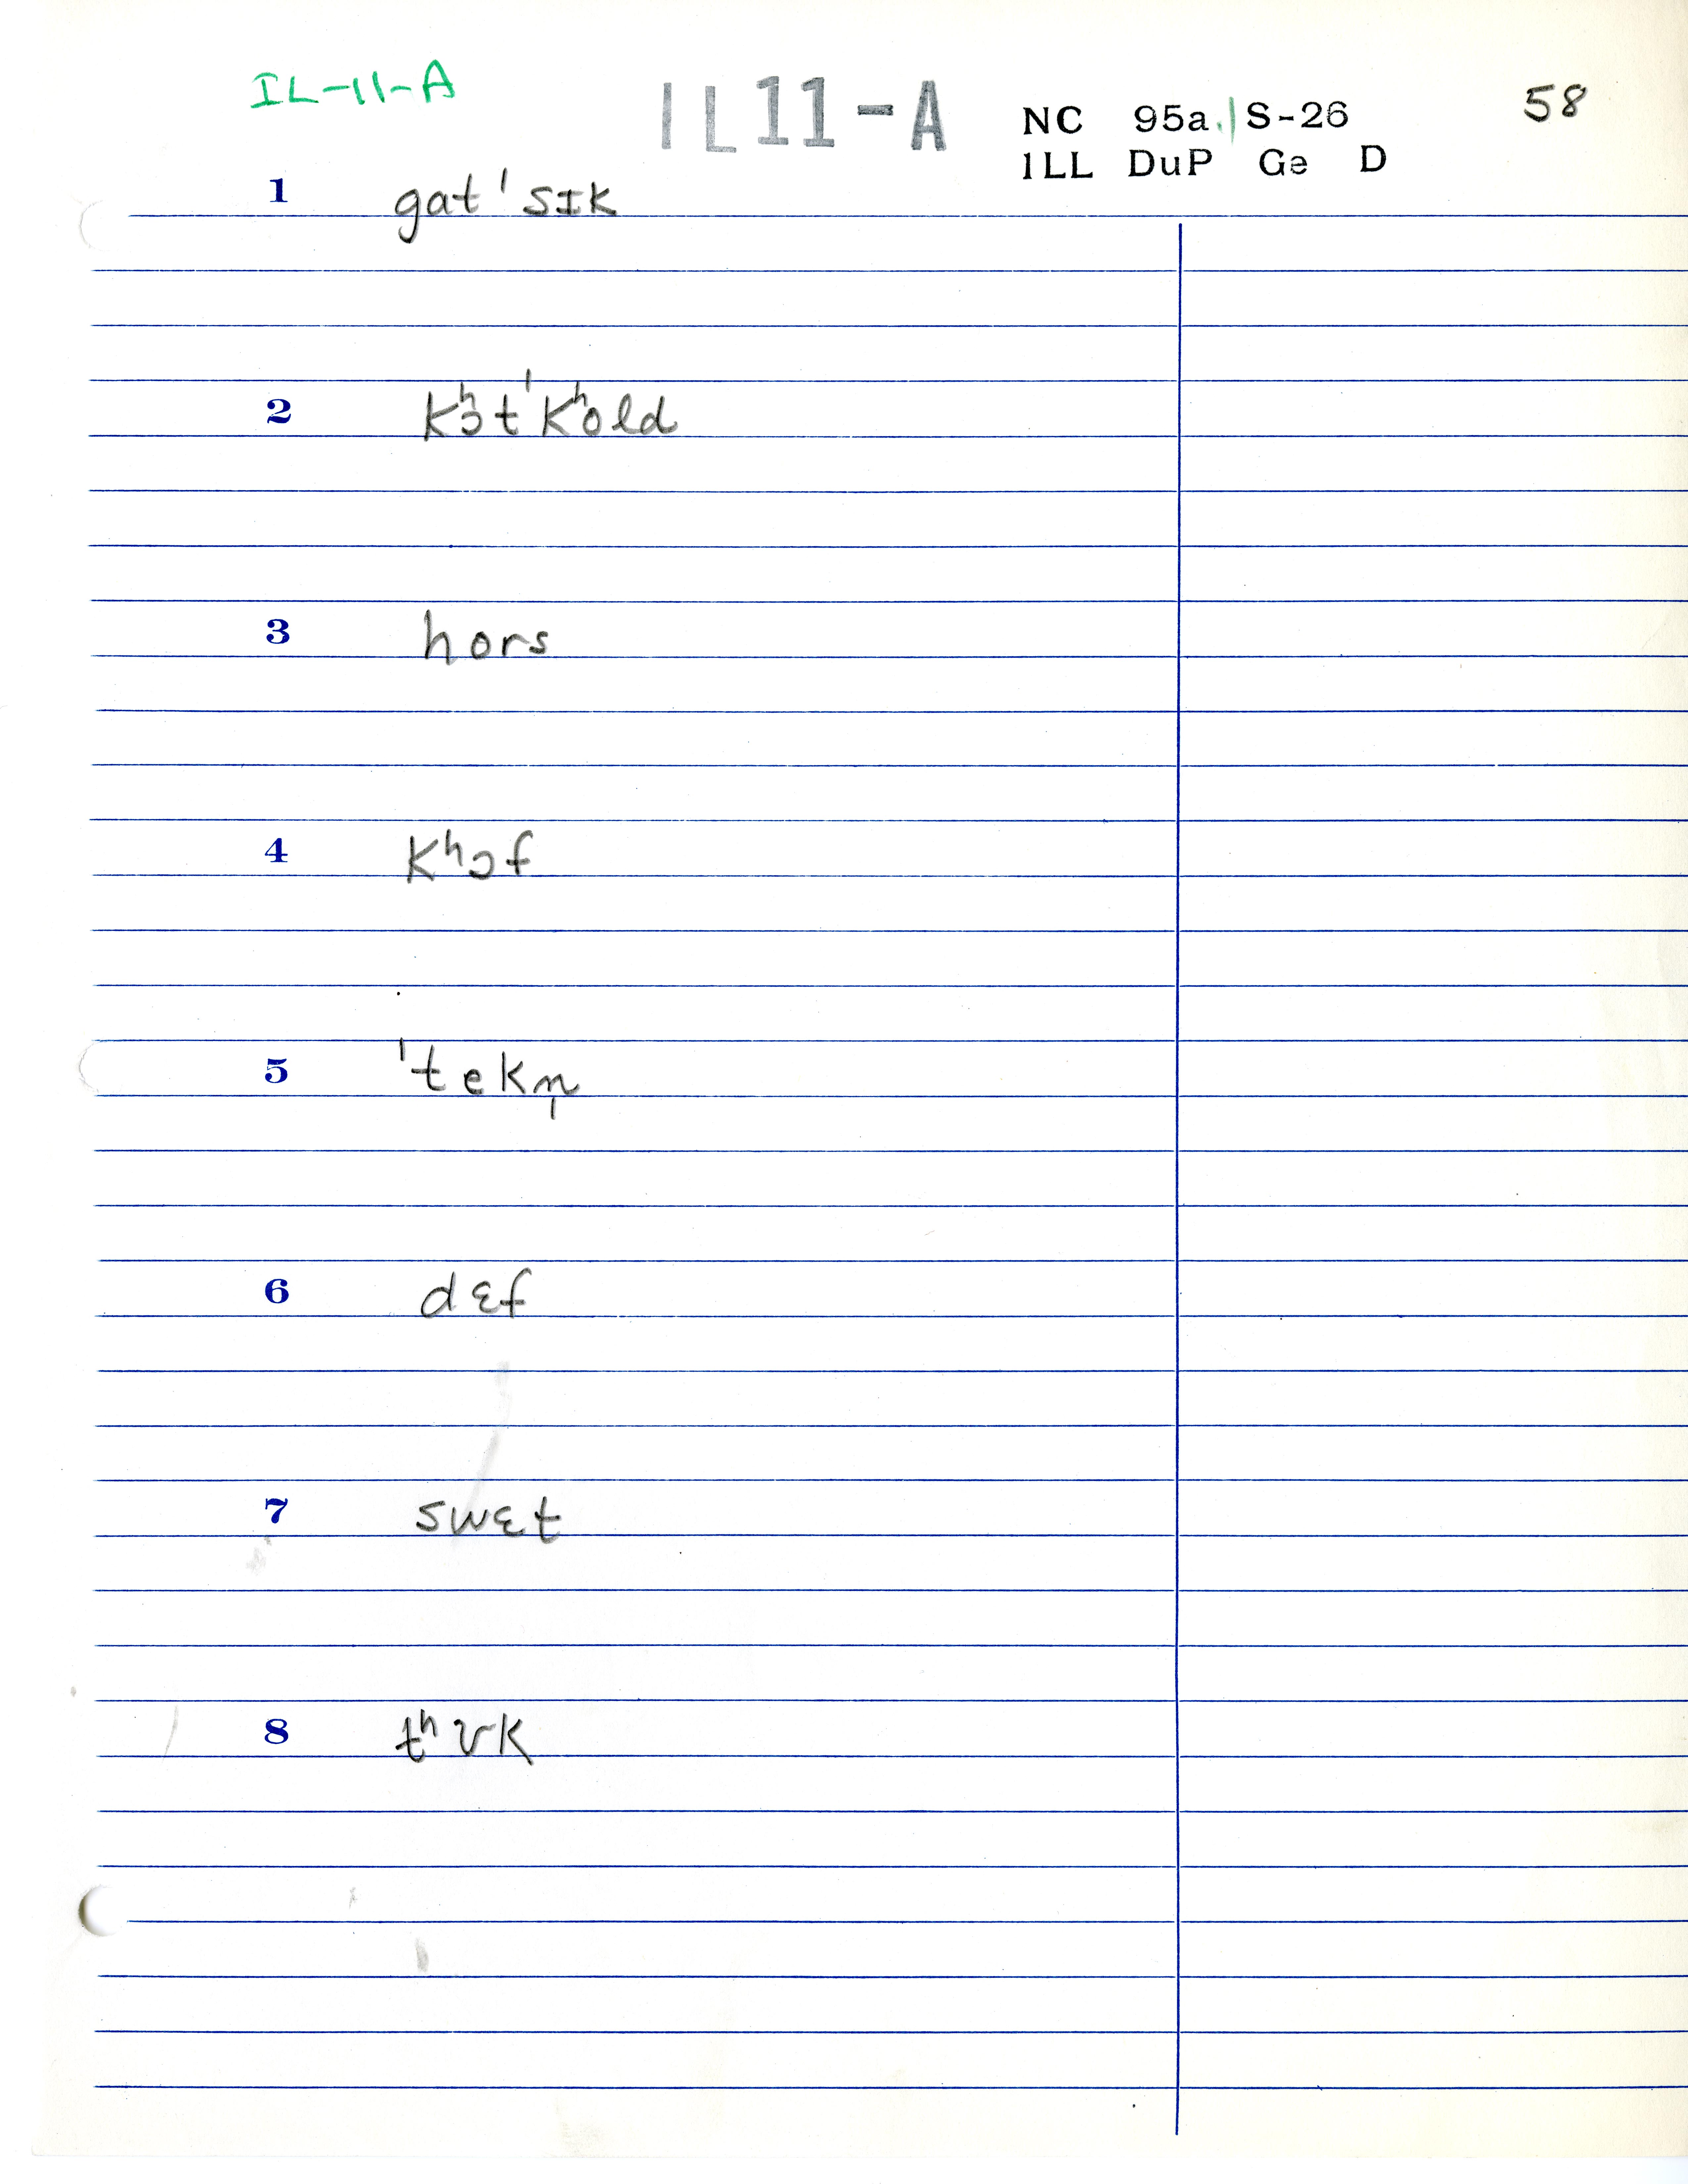 IL-11-A
IL11-A
58
NC 95a. | S-26
ILL DuP Ge D
1 gat ˈsɪk
2 kʰɔt ˈkʰold
3 hors
4 kʰɔf
5 ˈtekn̩
6 dɛf
7 swɛt
8 tʰʊk